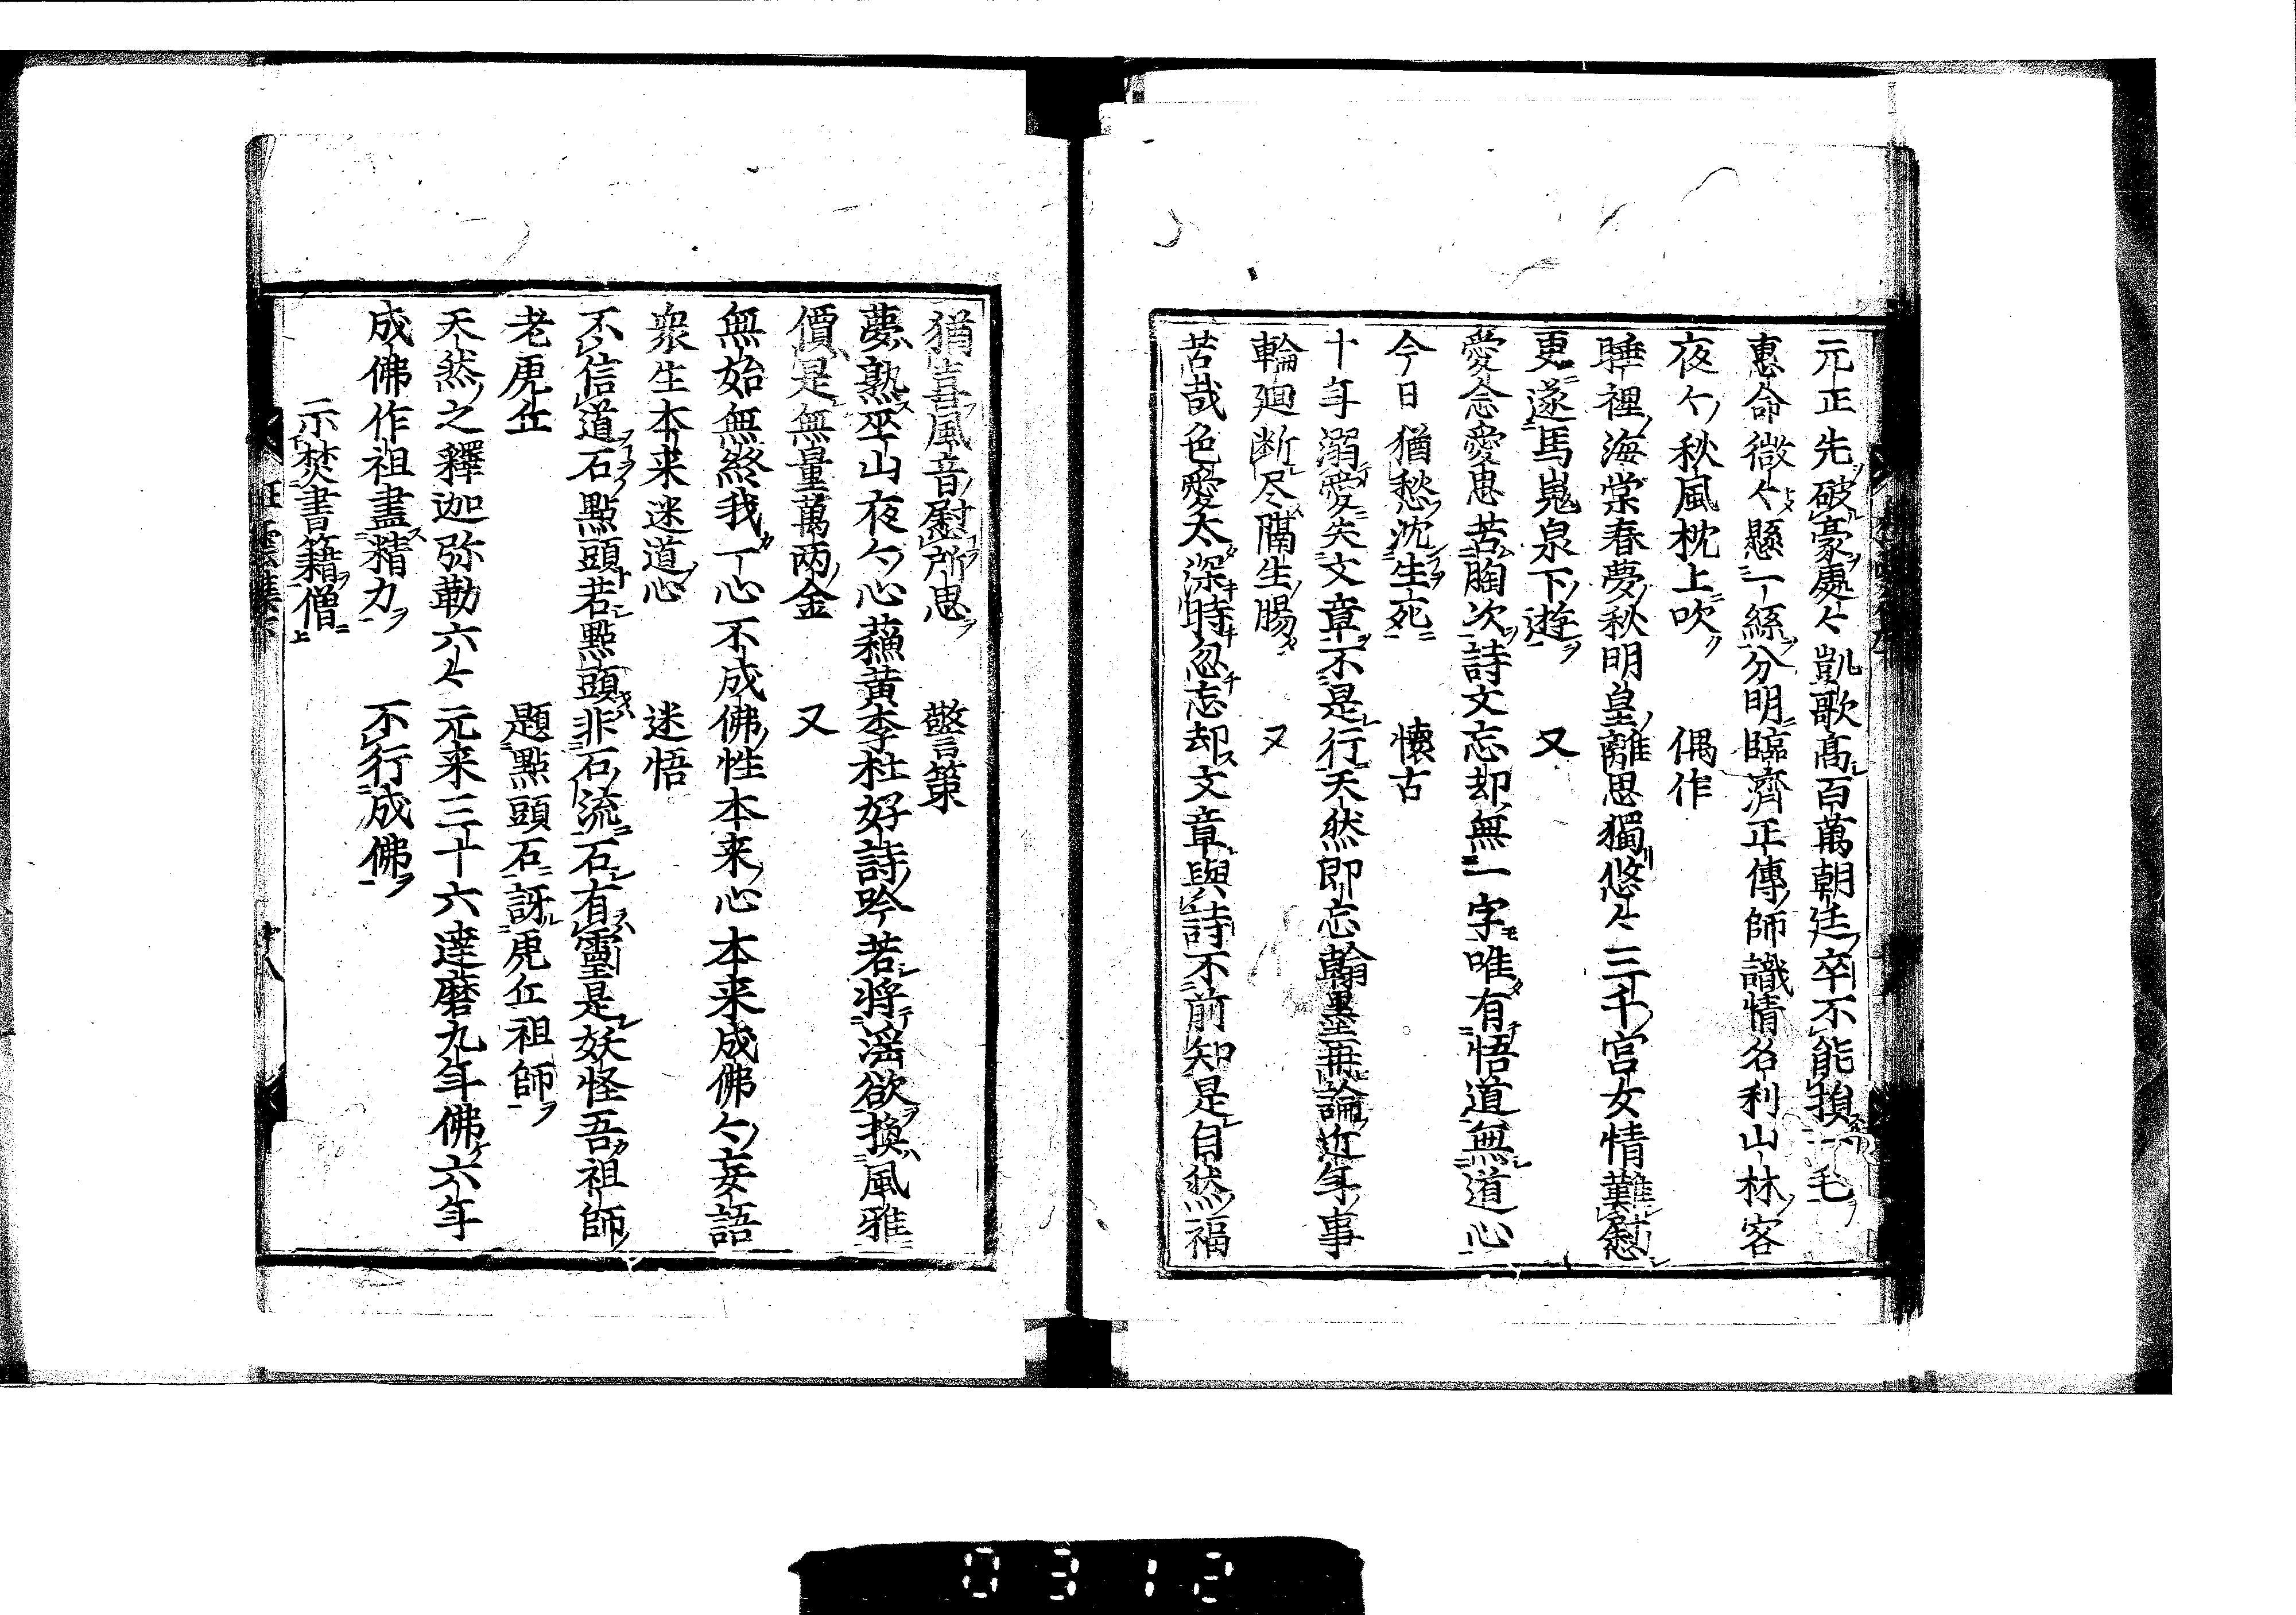 元正先破豪處々凱歌高百萬朝廷卒不能損一毛
惠命微々懸一絲分明臨濟正傳師識情名利山林客
夜々秋風枕上吹　偶作
睡裡海棠春夢秋明皇離思獨悠々三千宮女情難慰
更遂馬嵬泉下遊　又
愛念愛思苦胸次詩文忘却無一字唯有悟道無道心
今日猶愁沈生死　懐古
十年溺愛失文章不是行天然即忘翰墨再論近年事
輪廻断尽隔生腸　又
苦哉色愛太深時忽忘却文章與詩不前知是自然福
猶喜風音慰所思　警策
夢熟巫山夜々心蘓黄李杜好詩吟若将淫欲換風雅
價是無量萬両金　又
無始無終我一心不成佛性本来心本来成佛々妄語
衆生本来迷道心　迷悟
不信道石點頭若點頭非石流石有靈是妖怪吾祖師
老虎丘　題點頭石訝虎丘祖師
天然之釋迦弥勒六々元来三十六達磨九年佛六年
成佛作祖盡精力　不行成佛
示焚書籍僧
狂雲集下　廿八
0312